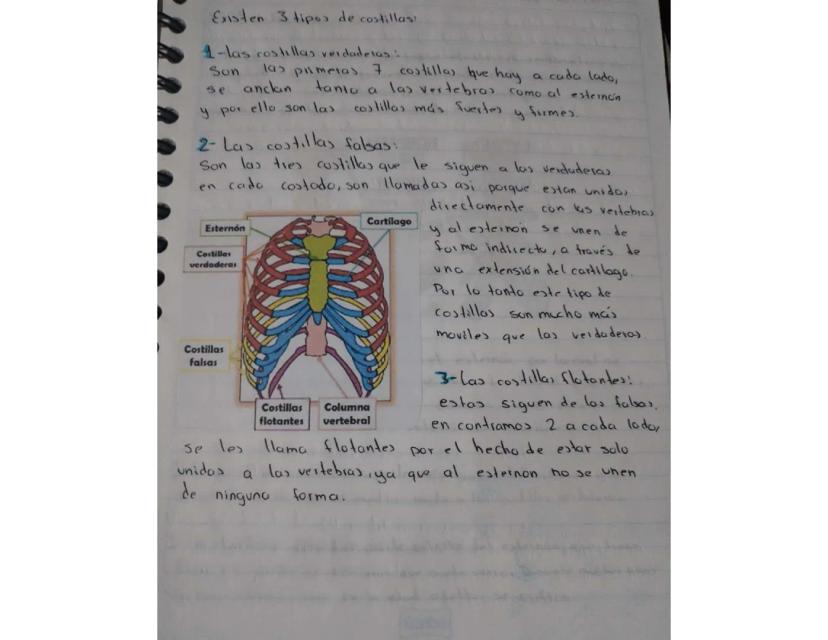 Existen 3 tipos de costillas:
1-las costillas verdaderas:
Son las primeras 7 costillas que hay a cada lado,
se anclan tanto a las vertebras como al esternón
y por ello son las costillas más fuertes y firmes.
2- Las costillas falsas:
Son las tres costillas que le siguen a las verdaderas
en cada costado, son llamadas asi porque estan unidas
directamente con las vertebras
y al esternón se unen de
forma indirecta, a través de
una extensión del cartílago.
Por lo tanto este tipo de
costillas son mucho más
moviles que las verdaderas
Esternón
Cartílago
Costillas
verdaderas
Costillas
falsas
Costillas
flotantes
Columna
vertebral
3-Las costillas flotantes:
estas siguen de las falsas,
en contramos 2 a cada lado,
se les llama flotantes por el hecho de estar solo
unidas a las vertebras, ya que al esternon no se unen
de ninguna forma.